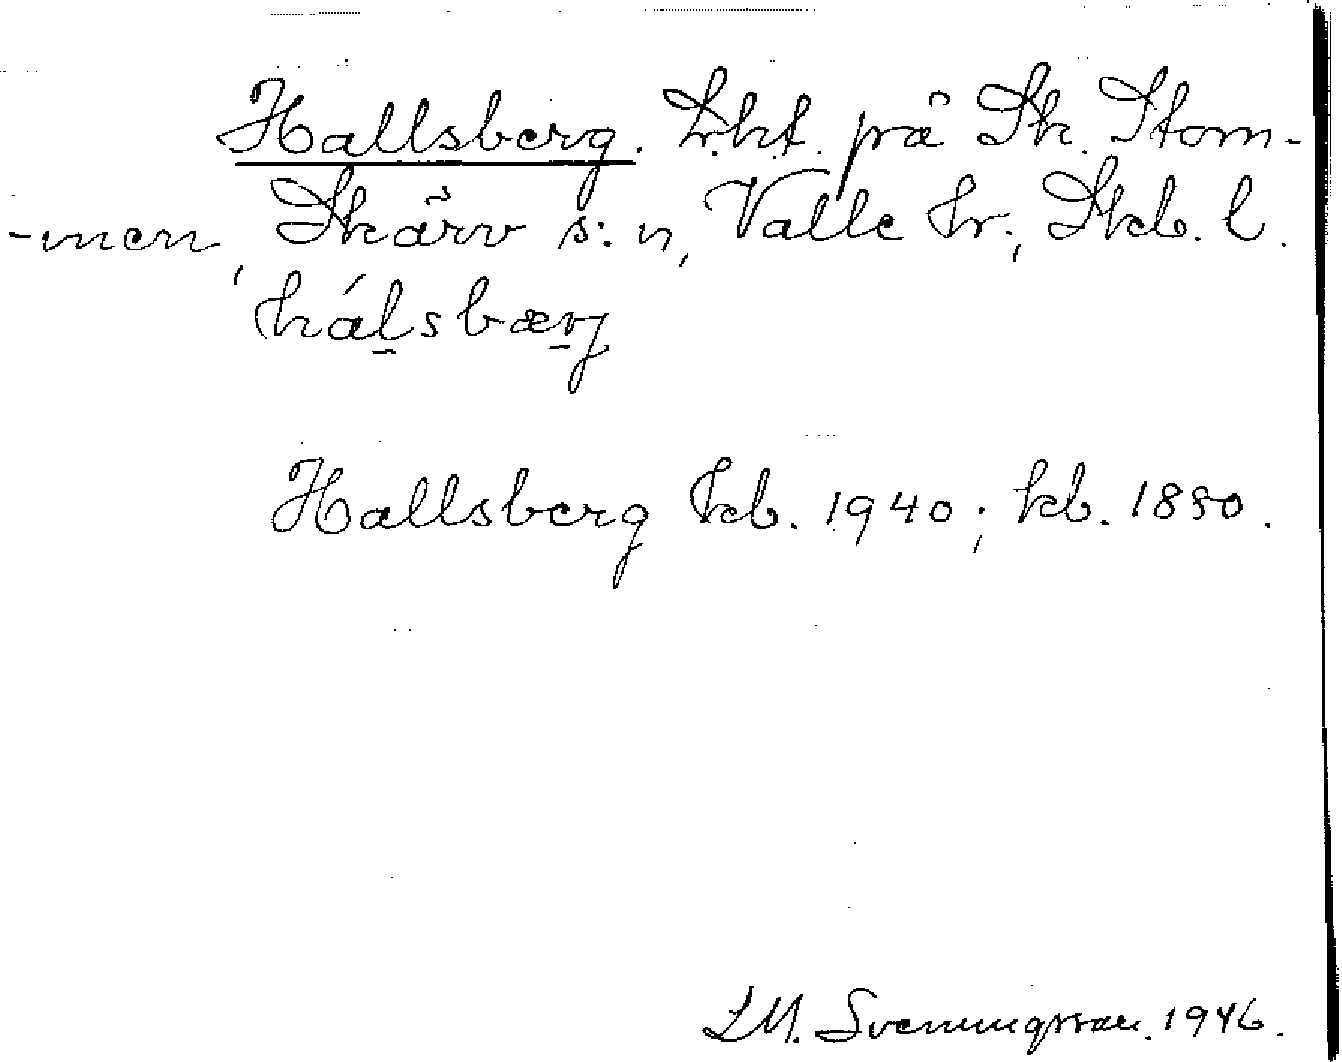 Hallsberg. Lht. på Sk. Stom-
-men, Skärv s:n, Valle hr., Skb. l.
hálsbærj
Hallsberg kb. 1940; kb. 1880.
L M. Svenungsson. 1946.